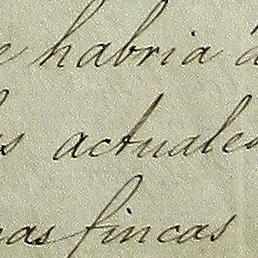 e habria á
s actuales
as fincas